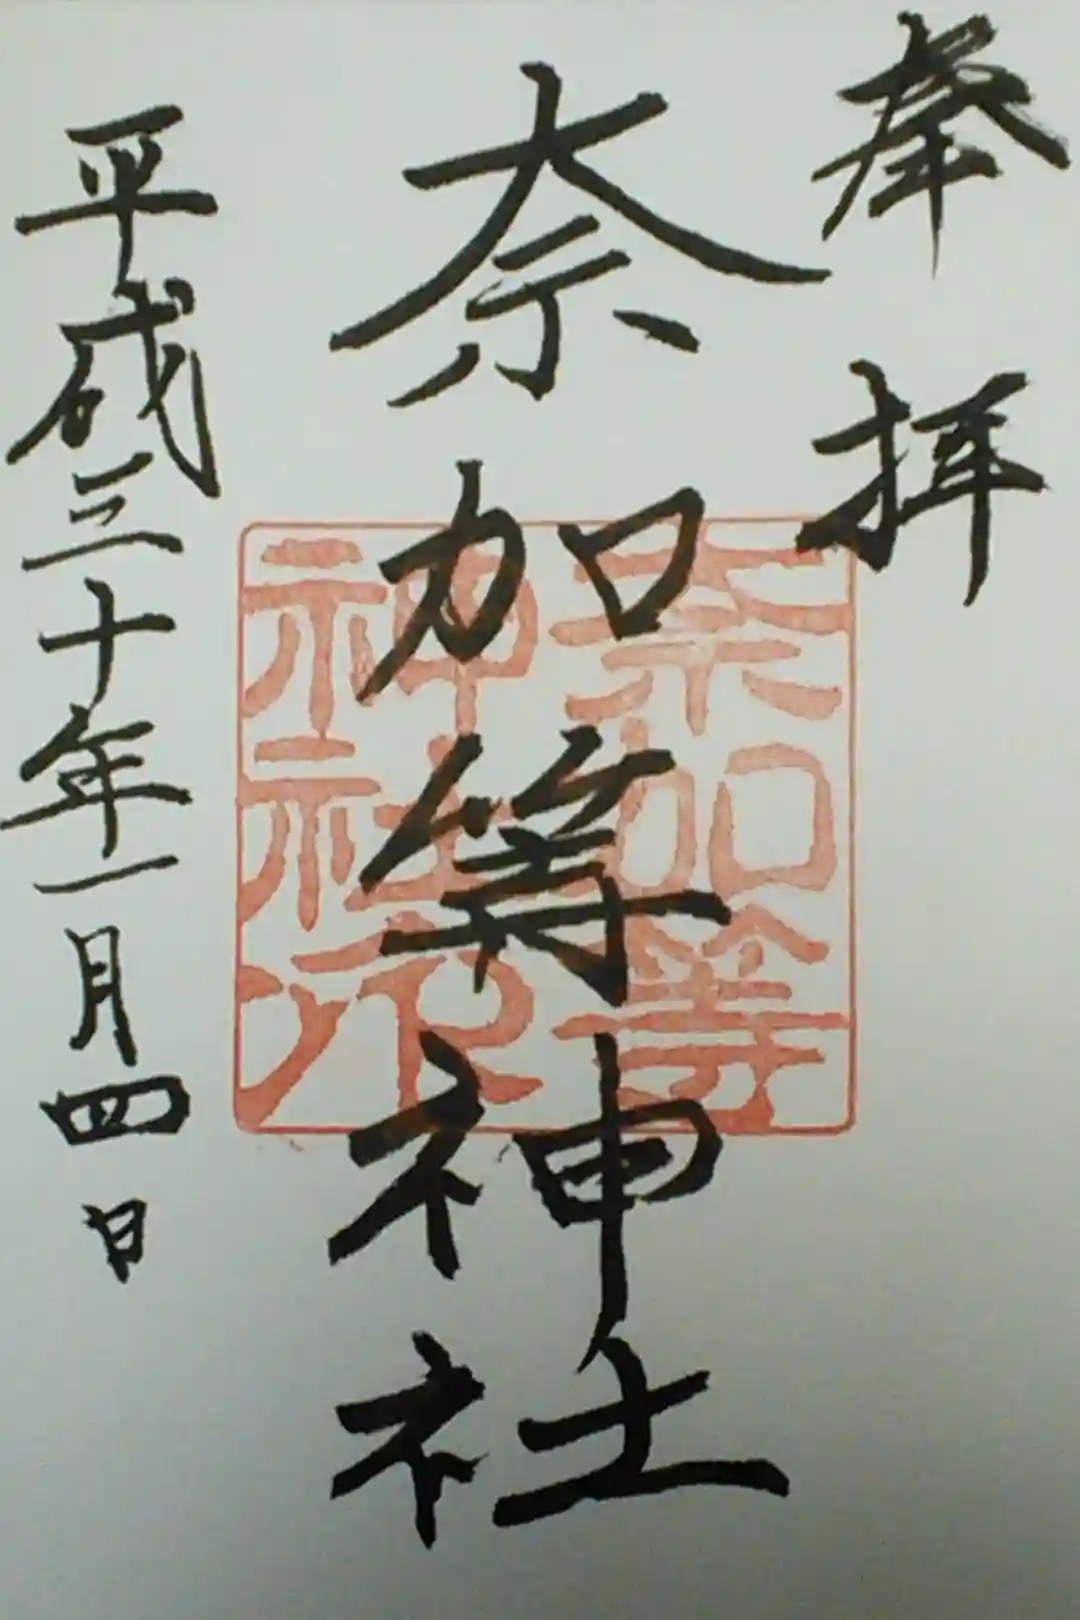 奉拝
奈加等神社
奈加等
神社之印
平成三十年一月四日